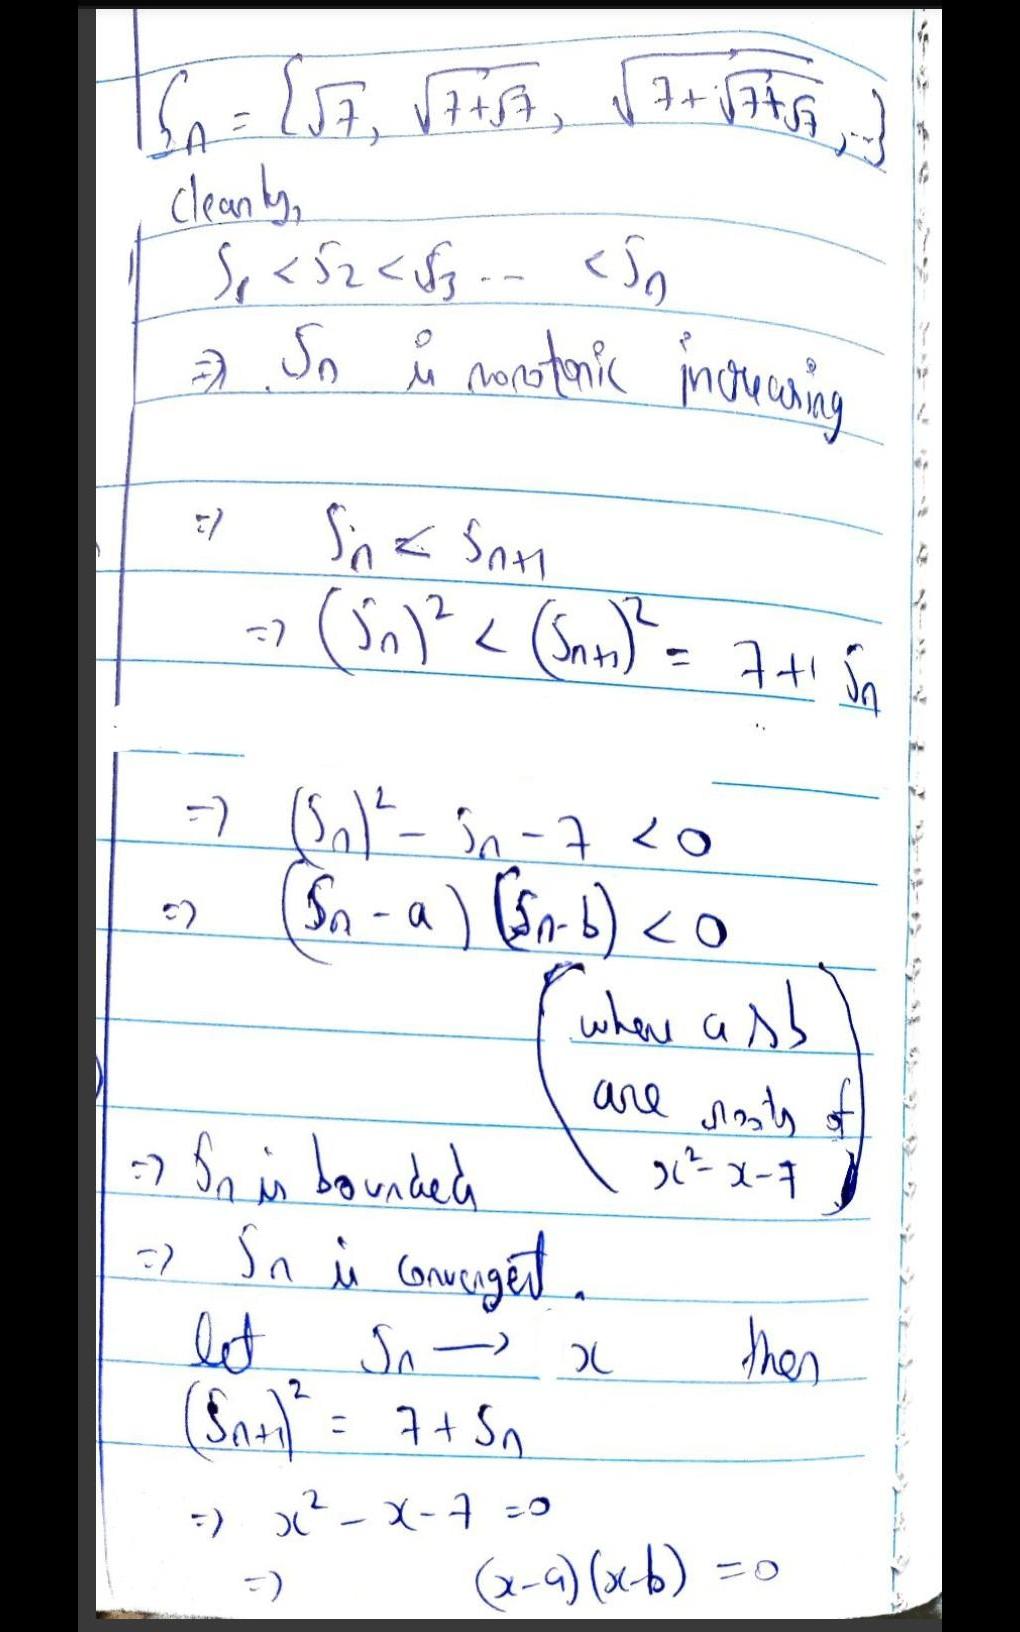 Sn = {√7, √(7+√7), √(7+√(7+√7)), ...}
Clearly,
S1 < S2 < S3 ... < Sn
⇒ Sn is monotonic increasing
⇒ Sn < Sn+1
⇒ (Sn)² < (Sn+1)² = 7 + Sn
⇒ (Sn)² - Sn - 7 < 0
⇒ (Sn - a) (Sn - b) < 0
(where a & b
are roots of
x² - x - 7)
⇒ Sn is bounded
⇒ Sn is convergent.
let Sn → x then
(Sn+1)² = 7 + Sn
⇒ x² - x - 7 = 0
⇒ (x-a)(x-b) = 0